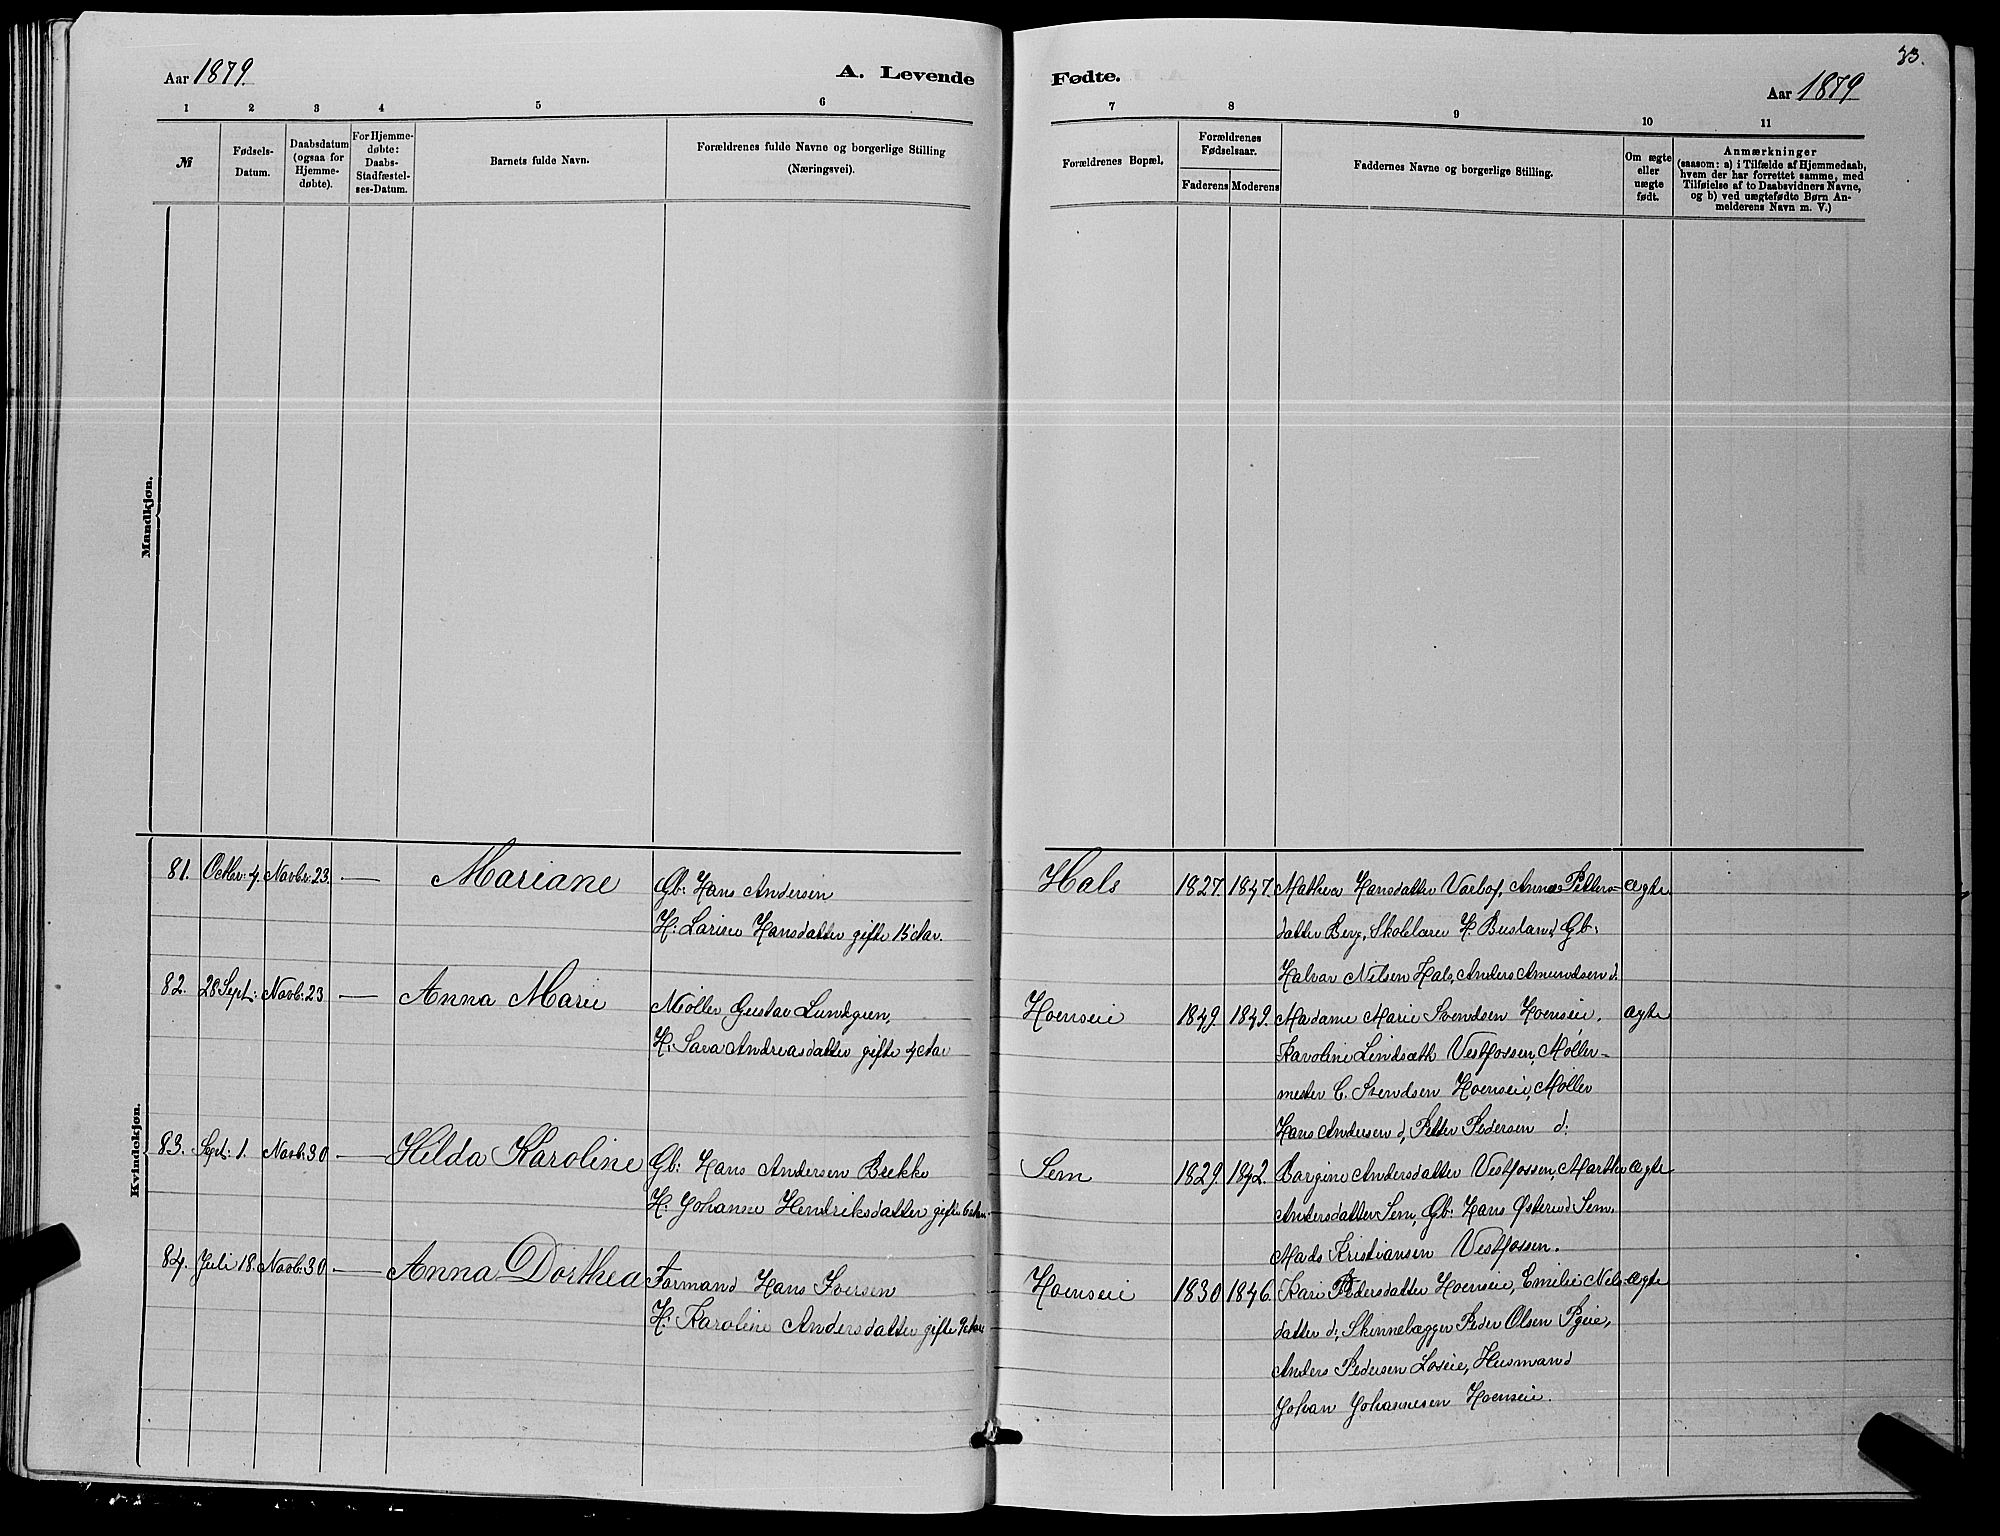 33.
Aar 1879. A. Levende Fødte. Aar 1879
1 2 3 4 5 6 7 8 9 10 11
№
Fødsels-
Datum.
Daabsdatum
(ogsaa for
Hjemme-
døbte).
For Hjemme-
døbte:
Daabs-
Stadfæstel-
ses-Datum.
Barnets fulde Navn.
Forældrenes fulde Navne og borgerlige Stilling
(Næringsvei).
Forældrenes Bopæl,
Forældrenes
Fødselsaar.
Faderens Moderens
Faddernes Navne og borgerlige Stilling.
Om ægte
eller
uægte
født.
Anmærkninger
(saasom: a) i Tilfælde af Hjemmedaab,
hvem der har forrettet samme, med
Tilføielse af to Daabsvidners Navne,
og b) ved uægtefødte Børn An-
melderens Navn m. V.)
Mandkjøn.
Kvindekjøn.
81. Octbr: 4. Novbr: 23. — Mariane
Gb: Hans Andersen
H: Larine Hansdatter gifte 15 Aar.
Hals 1827. 1847.
Mathea Hansdatter Anna Petters-
datter Berg, Skolelærer H. Busland, Gb:
Halvar Nilsen Hals, Anders Amundsen d.
ægte
82. 28 Sept: Novb: 23 — Anna Marie
Møller Gustav Lundgren,
H: Sara Andreasdatter gifte 4 Aar
Hoenseie 1849. 1849.
Madame Marie Svendsen Hoenseie,
Karoline Lindsæth Vestfossen, Møller-
mester C. Svendsen Hoenseie, Møller
Hans Andersen d, Petter Pedersen d:
ægte
83. Sept: 1. Novb: 30 — Hilda Karoline
Gb: Hans Andersen Bække
H: Johanne Hendriksdatter gifte 6 Aar.
Sem 1829. 1842.
Borgine Andersdatter Vestfossen, Marthe
Andersdatter Sem, Gb: Hans Østerud Sem,
Mads Kristiansen Vestfossen.
ægte
84. Juli 18. Novb: 30 — Anna Dorthea
Formand Hans Iversen
H: Karoline Andersdatter gifte 9 Aar
Hoenseie 1830 1846.
Kari Pedersdatter Hoenseie, Emilie Nels-
datter d, Skinnelægger Peder Olsen
Anders Pedersen Loseie, Husmand
Johan Johannesen Hoenseie.
ægte